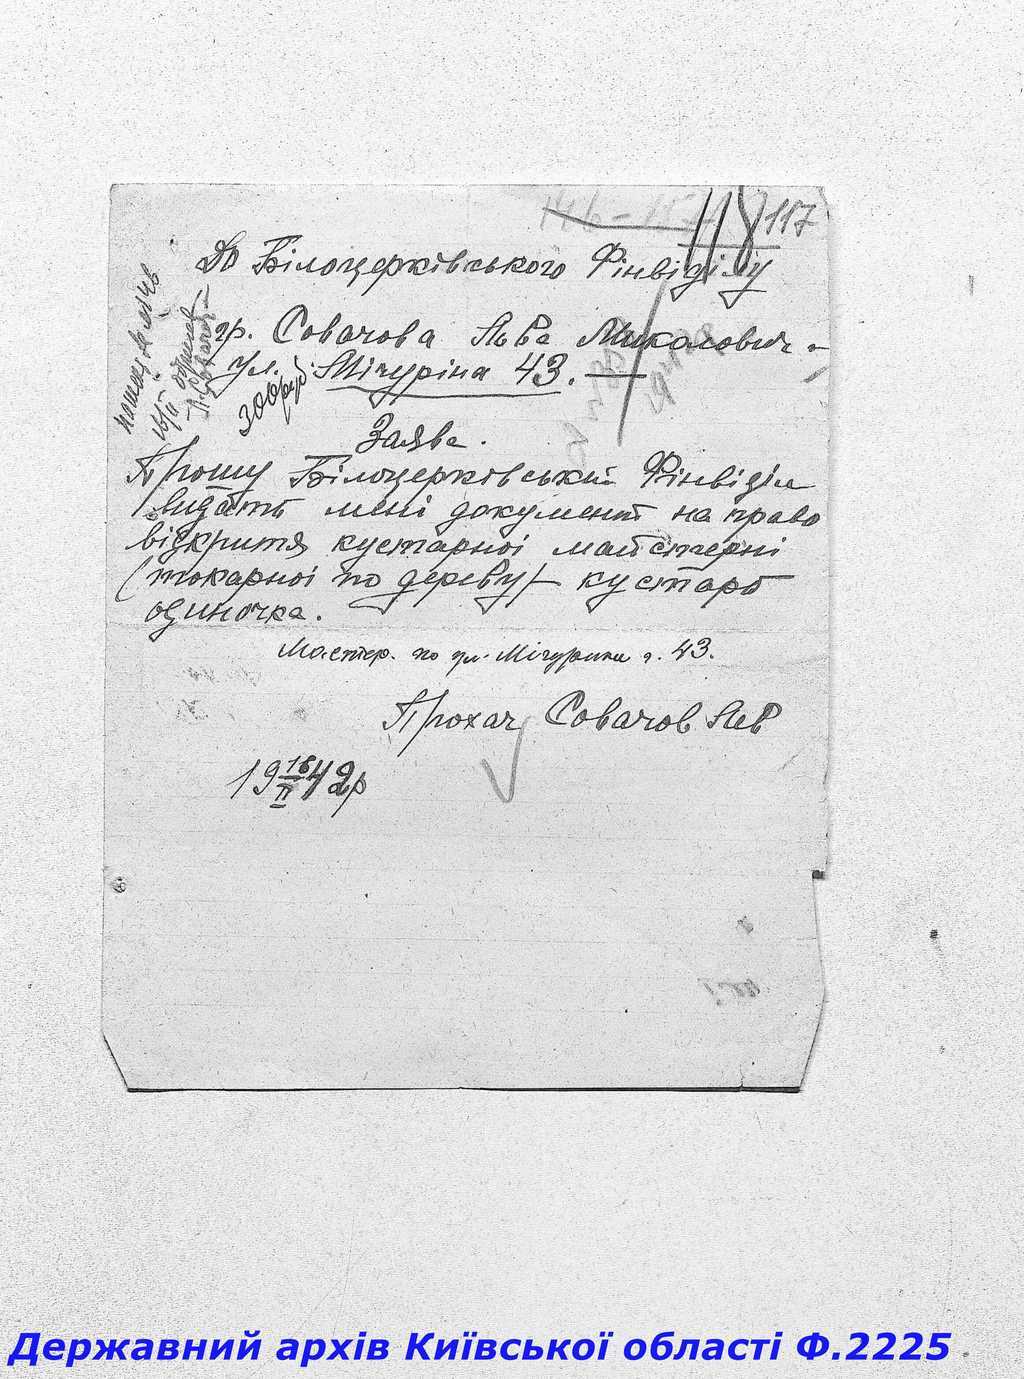 117
До Білоцерківського Фінвіділу
гр. Совачова Льва Миколович
ул. Мічуріна 43.
300 руб
Заява.
Прошу Білоцерківський Фінвіділ
видать мені документ на право
відкритя кустарної майстерні
(токарної по дереву) кустарь
одиночка.
Мастер. по ул. Мічурина 43.
Прохач Совачов Лев
19 16/II 42р
Державний архів Київської області Ф.2225